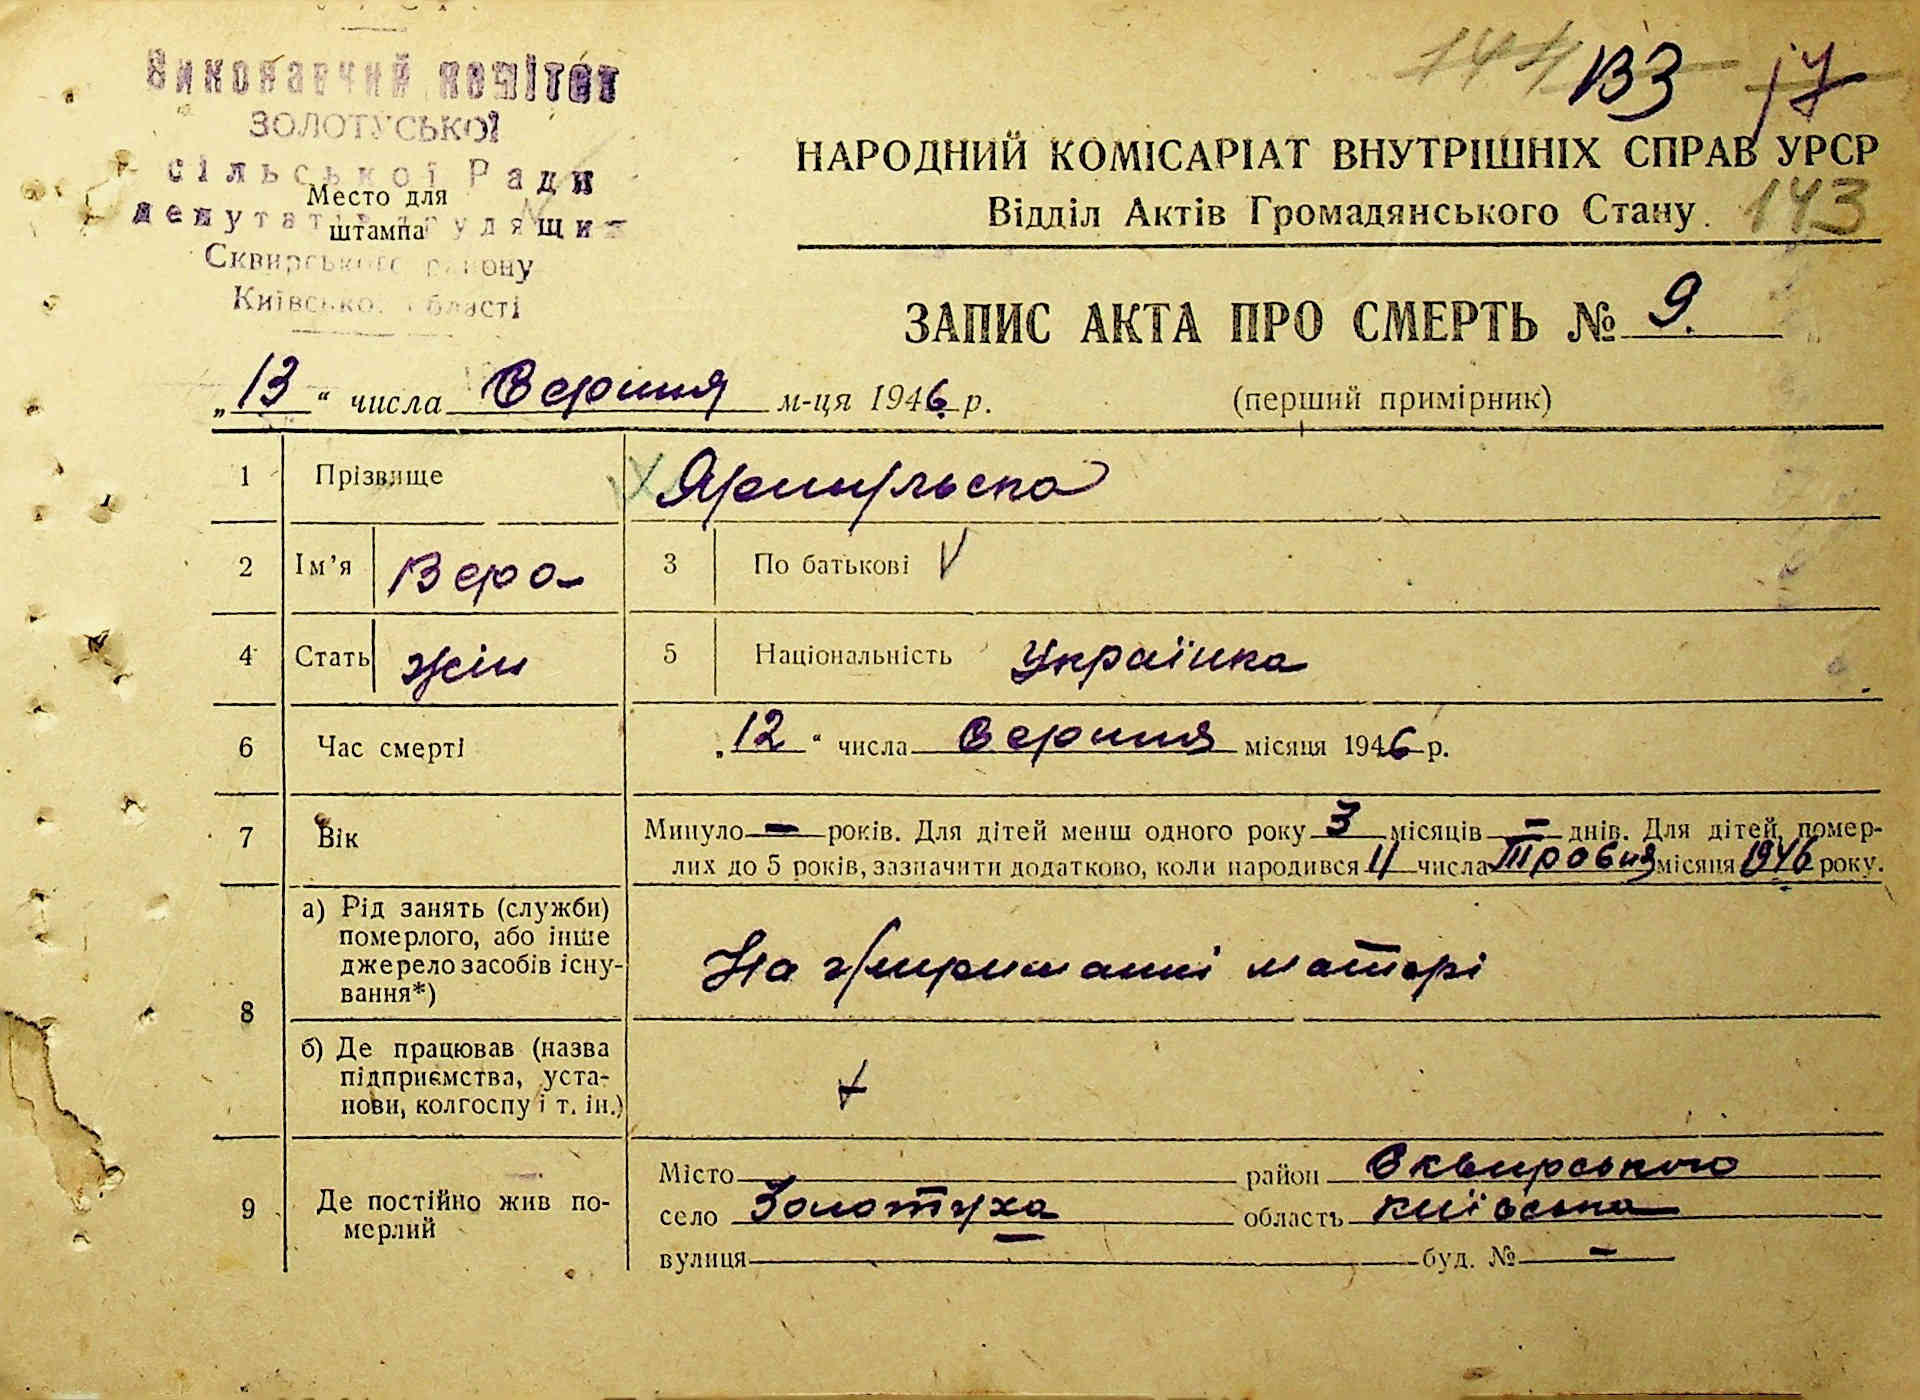 Виконавчий комітет
ЗОЛОТУСЬКОЇ
сільської Ради
Место для
депутатів трудящих
штампа
Сквирського району
Київської області
144 133 17
НАРОДНИЙ КОМІСАРІАТ ВНУТРІШНІХ СПРАВ УРСР
Відділ Актів Громадянського Стану. 143
ЗАПИС АКТА ПРО СМЕРТЬ № 9.
„13“ числа Вересня м-ця 1946 р. (перший примірник)
1 Прізвище
2 Ім'я Вера 3 По батькові
4 Стать жін 5 Національність Українка
6 Час смерті „12“ числа Вересня місяця 1946 р.
7 Вік Минуло — років. Для дітей менш одного року 3 місяців — днів. Для дітей, помер-
лих до 5 років, зазначити додатково, коли народився 11 числа Травня місяця 1946 року.
8 а) Рід занять (служби)
померлого, або інше
джерело засобів існу-
вання*)
На матері
б) Де працював (назва
підприємства, уста-
нови, колгоспу і т. ін.)
9 Де постійно жив по-
мерлий
Місто район Сквирського
село Золотуха область Київська
вулиця буд. № —